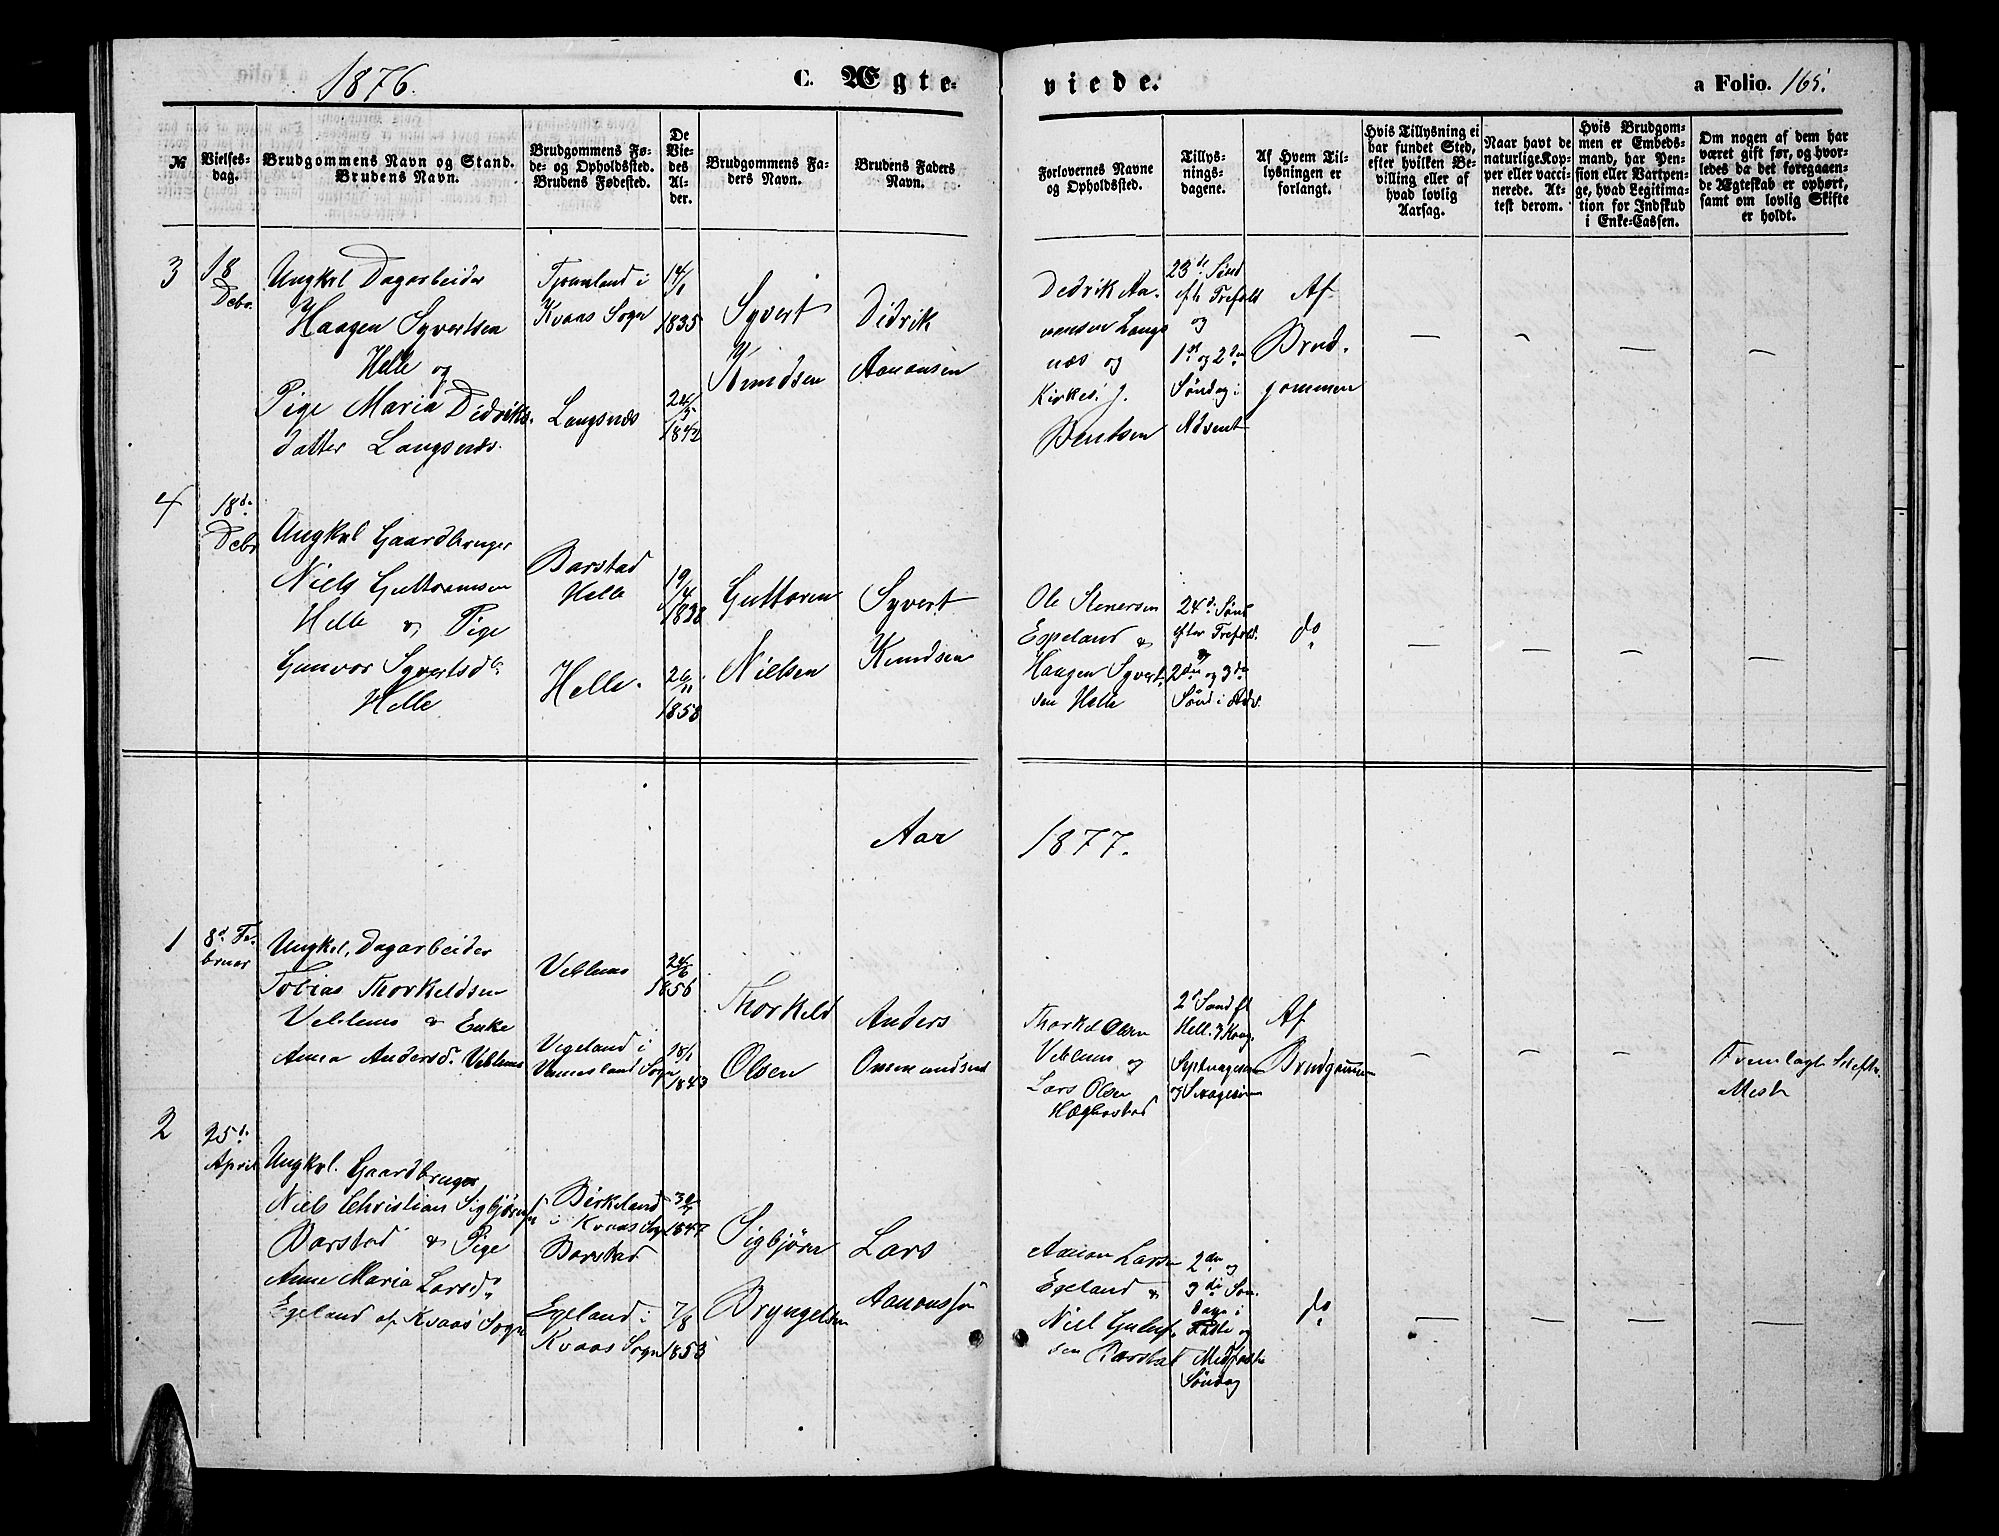 1876.
C. Ægte-
viede.
a Folio. 165.
№
Vielses-
dag.
Brudgommens Navn og Stand.
Brudens Navn.
Brudgommens Fø-
de- og Opholdssted.
Brudens Fødested.
De
Vie-
des
Al-
der.
Brudgommens Fa-
ders Navn.
Brudens Faders
Navn.
Forlovernes Navne
og Opholdssted.
Tillys-
nings-
dagene.
Af Hvem Til-
lysningen er
forlangt.
Hvis Tillysning ei
har fundet Sted,
efter hvilken Be-
villing eller af
hvad lovlig
Aarsag.
Naar havt de
naturlige Kop-
per eller vacci-
nerede. At-
test derom.
Hvis Brudgom-
men er Embeds-
mand, har Pen-
sion eller Vartpen-
ge, hvad Legitima-
tion for Indskud
i Enke-Cassen.
Om nogen af dem har
været gift før, og hvor-
ledes da det foregaaen-
de Ægteskab er ophørt,
samt om lovlig Skifte
er holdt.
3
18
Debr.
Ungkrl Dagarbeider
Haagen Syvertsen
Helle og
Pige Maria Didriks-
datter Langsnæs.
Tjomland i
Kvaas Sogn
Langsnæs
14/1
1835
24/5
1842
Syvert
Knudsen
Didrik
Aanonsen
Dedrik Aa-
nonsen Langs
næs og
Kirkes. J.
Bentsen
23de Sønd
eft. Trefold
og
1ste og 2den
Søndag i
Advent
Af
Brud-
gommen
4
18de
Debr
Ungkrl Gaardbruger
Niels Guttormsen
Helle & Pige
Gunvor Syvertsdtr
Helle
Barstad
Helle
Helle.
19/4
1838
26/11
1858
Guttorm
Nielsen
Syvert
Knudsen
Ole Stenersen
Espeland &
Haagen Syvert-
sen Helle
24de Sønd
efter Trefold.
&
2den og 3die
Sønd i Adv.
do
Aar
1877.
1
8de Fe-
bruar
Ungkrl. Dagarbeider
Tobias Thorkeldsen
Veblems & Enke
Anna Andersdr Veblems
Veblems
Vegeland i
Vennesland Sogn
24/6
1856
18/1
1843
Thorkeld
Olsen
Anders
Ommundsen
Thorkel Olsen
Veblems og
Lars Olsen
Hægbostad
2d Sønd ft
Hell. 3 Kong.
Septuagesima
og Sexagesima
Af
Brudgommen
Fremlagt Skifte-
Attest
2
25de
April
Ungkrl. Gaardbruger
Niels Christian Sigbjørnsen
Barstad & Pige
Anne Maria Larsdr
Egeland af Kvaas Sogn
Birkeland
i Kvaas Sogn
Barstad
Egeland i
Kvaas Sogn
1847
7/8
1853
Sigbjørn
Bryngelsen
Lars
Aanonssen
Aanon Larsen
Egeland &
Niel Guttorm-
sen Barstad
2den og
3die Søn-
dage i
Faste og
Midfaste
Søndag
do